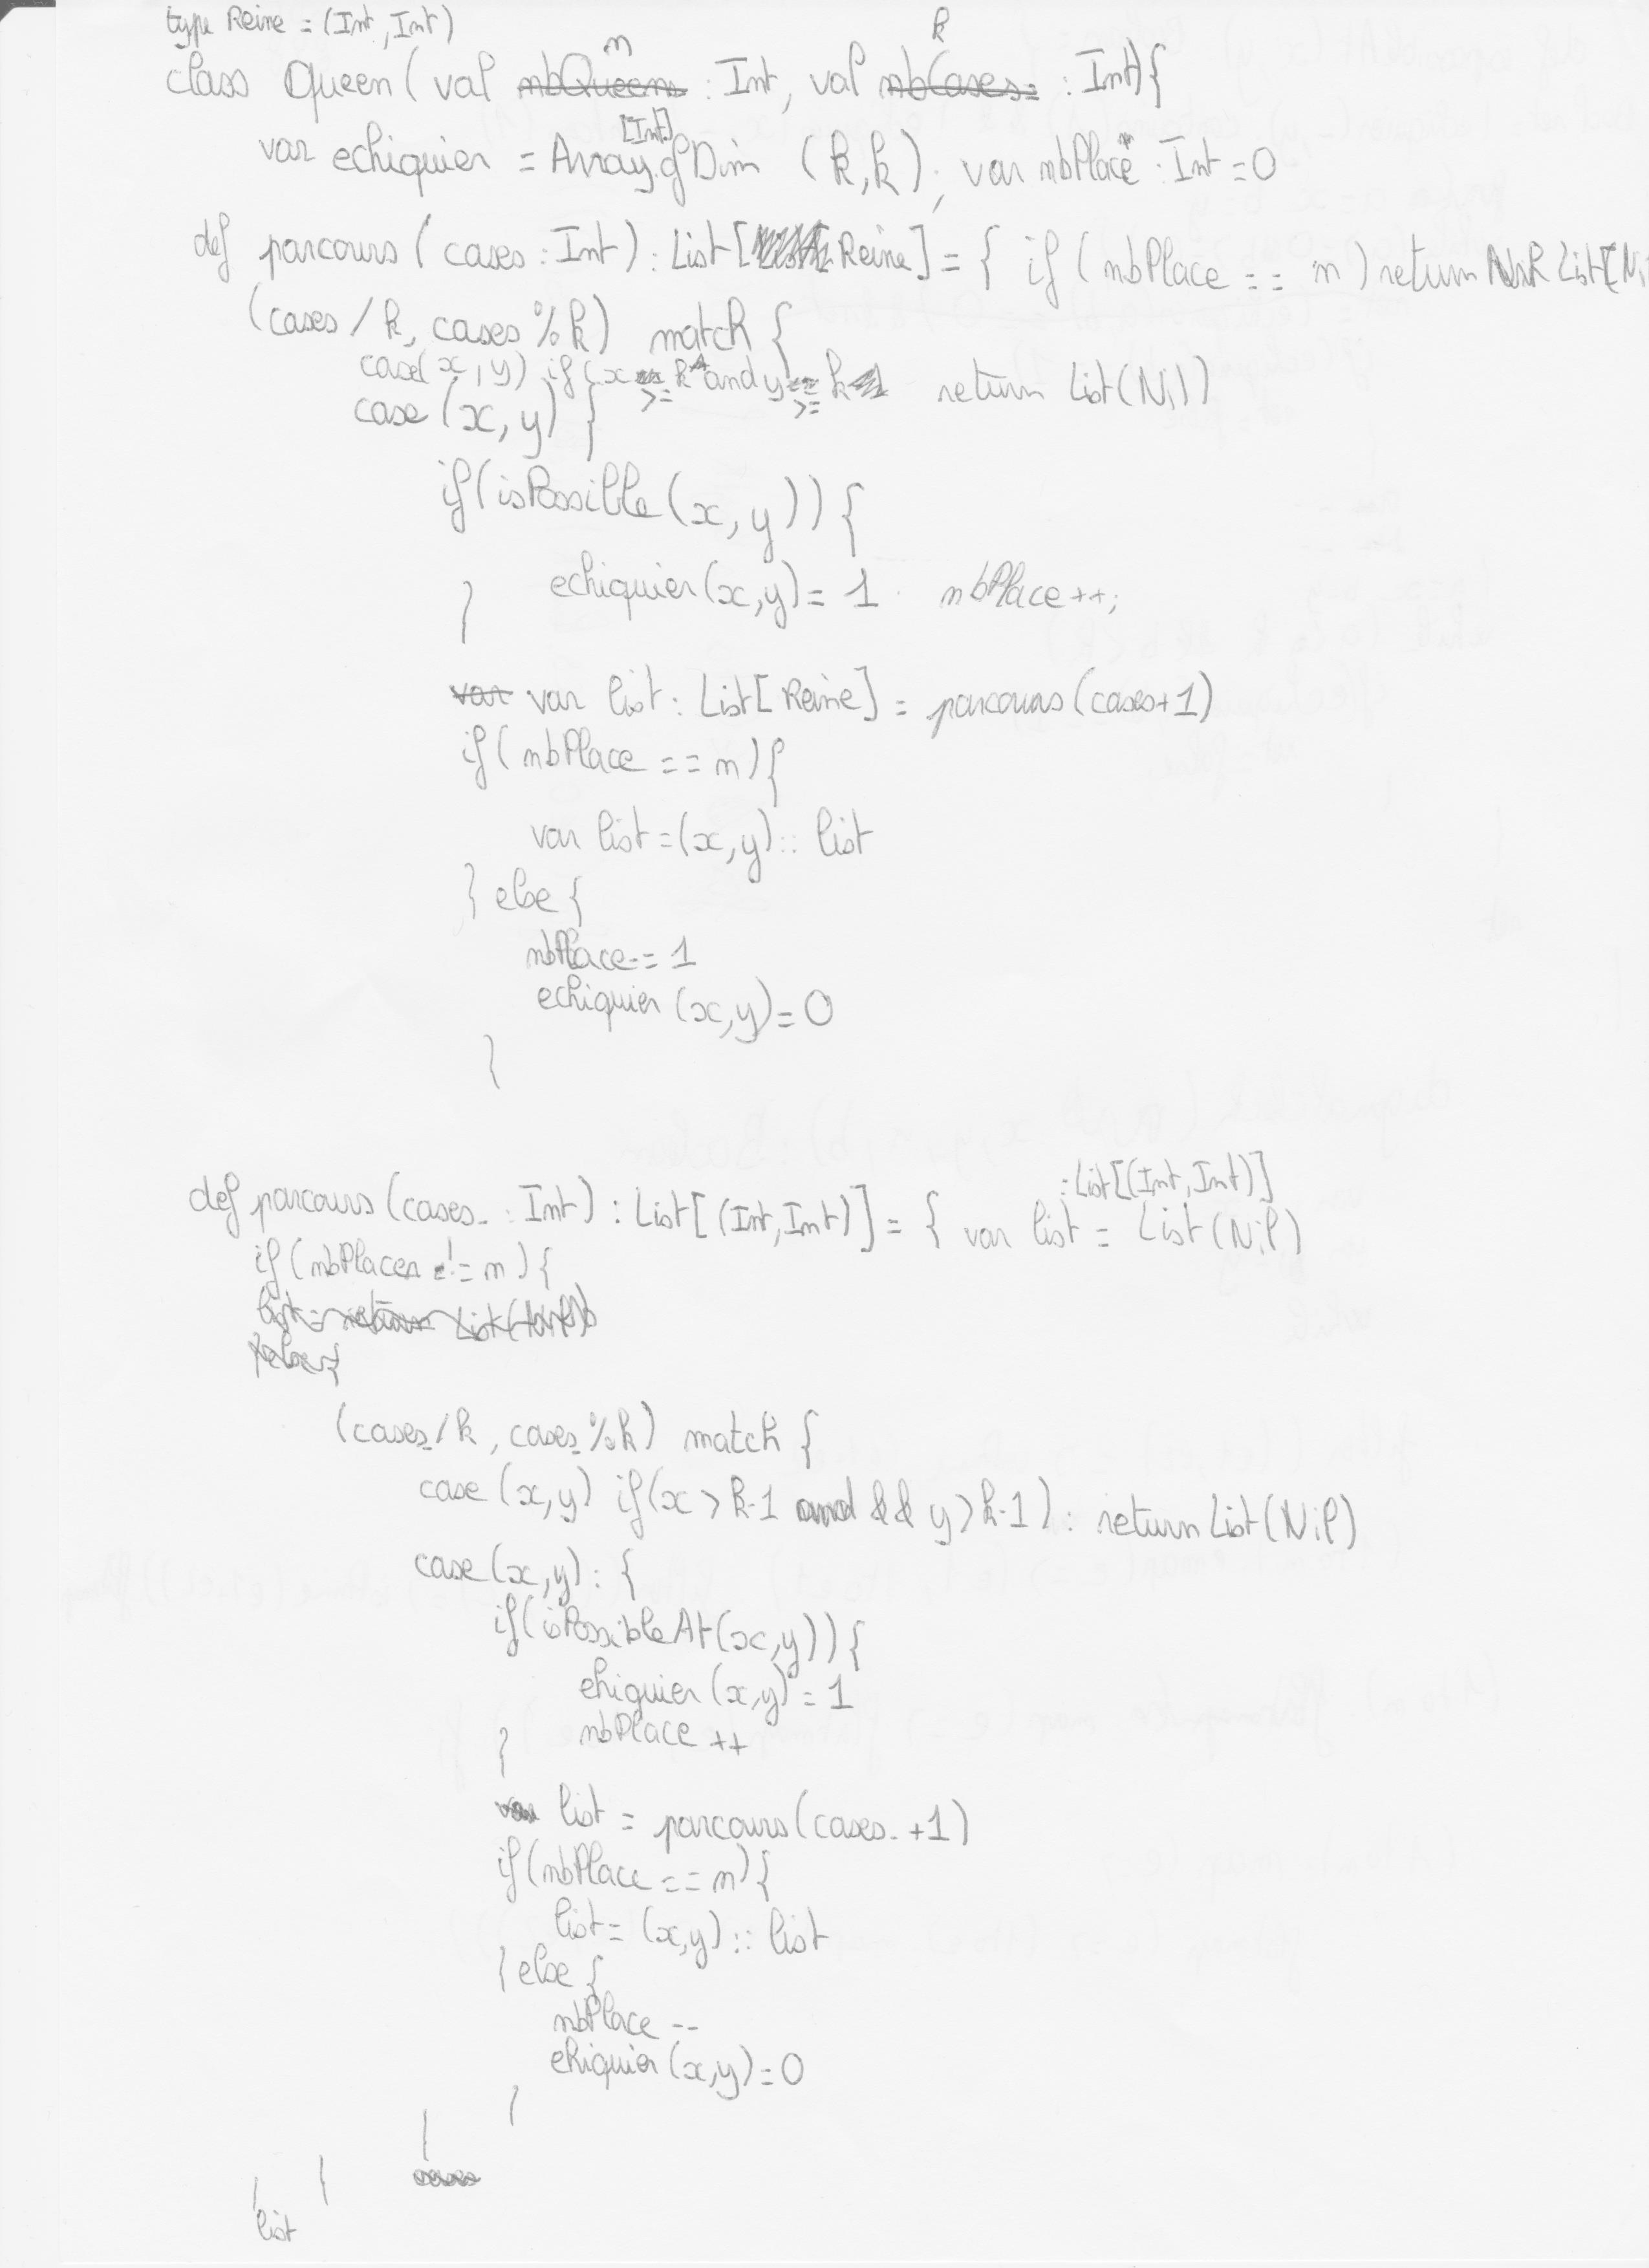 type Reine = (Int, Int)
class Queen ( val n : Int, val k : Int) {
var echiquier = Array.ofDim [Int] (k,k) ; var nbPlace : Int = 0
def parcours ( cases : Int ) : List[ Reine] = { if ( nbPlace == n ) return List[Ni
(cases / k, cases % k) match {
case( x, y) if( x >= k and y >= k return List(Nil)
case (x, y) {
if(isPossible(x, y)) {
echiquier(x,y) = 1 nbPlace ++;
}
var list : List[ Reine] = parcours(cases+1)
if( nbPlace == n ){
var list = (x,y) :: list
} else {
nbPlace -= 1
echiquier (x,y) = 0
}
def parcours (cases_ : Int) : List[ (Int,Int) ] = { var list : List[(Int,Int)] = List(Nil)
if (nbPlacer != n ) {
(cases_/k , cases_%k) match {
case (x,y) if(x > k-1 && y > k-1) : return List(Nil)
case (x,y) : {
if(isPossibleAt(x,y)) {
ehiquier (x,y) = 1
nbPlace ++
}
list = parcours(cases_ +1)
if(nbPlace == n) {
list = (x,y) :: list
} else {
nbPlace --
ehiquier (x,y) = 0
}
}
}
}
list